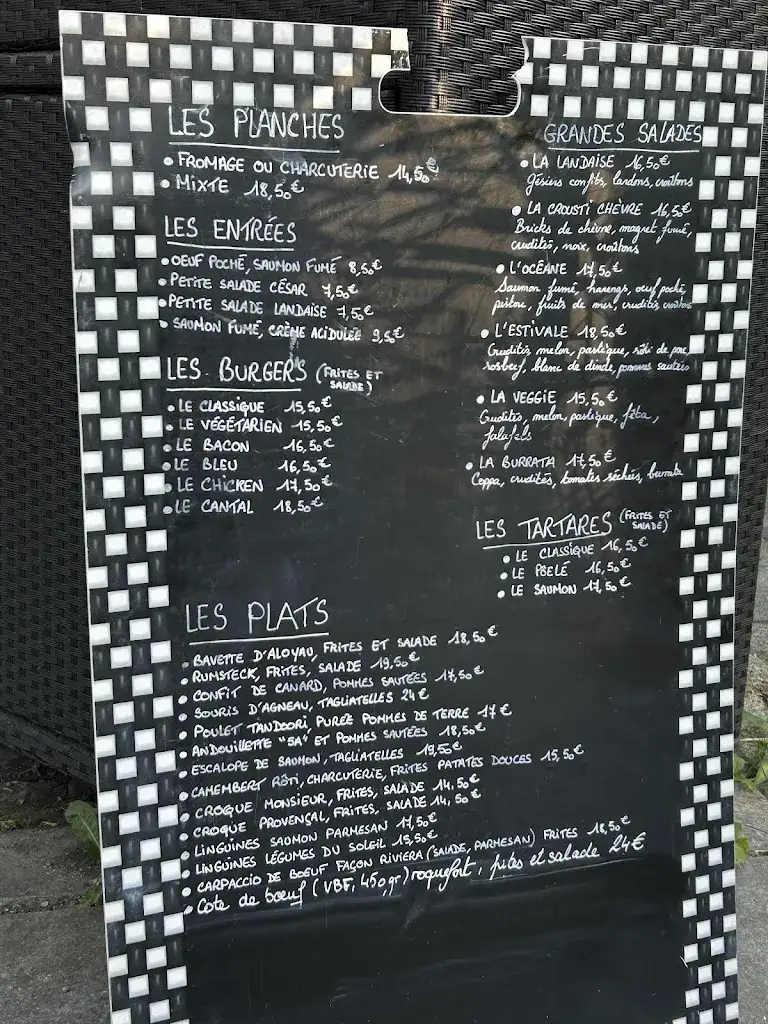 LES PLANCHES
• FROMAGE OU CHARCUTERIE 14,50€
• MIXTE 18,50€
LES ENTRÉES
• OEUF POCHÉ, SAUMON FUMÉ 8,50€
• PETITE SALADE CÉSAR 7,50€
• PETITE SALADE LANDAISE 7,50€
• SAUMON FUMÉ, CRÈME ACIDULÉE 9,50€
LES BURGERS (FRITES ET
SALADE)
• LE CLASSIQUE 15,50€
• LE VÉGÉTARIEN 15,50€
• LE BACON 16,50€
• LE BLEU 16,50€
• LE CHICKEN 17,50€
• LE CANTAL 18,50€
GRANDES SALADES
• LA LANDAISE 16,50€
Gésiers confits, lardons, croûtons
• LA CROUSTI CHÈVRE 16,50€
Bricks de chèvre, magret fumé,
crudités, noix, croûtons
• L'OCÉANE 17,50€
Saumon fumé, harengs, oeuf poché,
pistou, fruits de mer, crudités, croûtons
• L'ESTIVALE 18,50€
Crudités, melon, pastèque, rôti de porc,
rosbeef, blanc de dinde, pommes sautées
• LA VEGGIE 15,50€
Crudités, melon, pastèque, féta,
falafels
• LA BURRATA 17,50€
Coppa, crudités, tomates séchées, burrata
LES TARTARES (FRITES ET
SALADE)
• LE CLASSIQUE 16,50€
• LE POELÉ 16,50€
• LE SAUMON 17,50€
LES PLATS
• BAVETTE D'ALOYAU, FRITES ET SALADE 18,50€
• RUMSTECK, FRITES, SALADE 19,50€
• CONFIT DE CANARD, POMMES SAUTÉES 17,50€
• SOURIS D'AGNEAU, TAGLIATELLES 24€
• POULET TANDOORI, PURÉE POMMES DE TERRE 17€
• ANDOUILLETTE "5A" ET POMMES SAUTÉES 18,50€
• ESCALOPE DE SAUMON, TAGLIATELLES 19,50€
• CAMEMBERT RÔTI, CHARCUTERIE, FRITES PATATES DOUCES 15,50€
• CROQUE MONSIEUR, FRITES, SALADE 14,50€
• CROQUE PROVENÇAL, FRITES, SALADE 14,50€
• LINGUINES SAUMON PARMESAN 17,50€
• LINGUINES LÉGUMES DU SOLEIL 15,50€
• CARPACCIO DE BOEUF FAÇON RIVIERA (SALADE, PARMESAN) FRITES 18,50€
• Cote de boeuf (VBF, 450gr) roquefort, frites et salade 24€